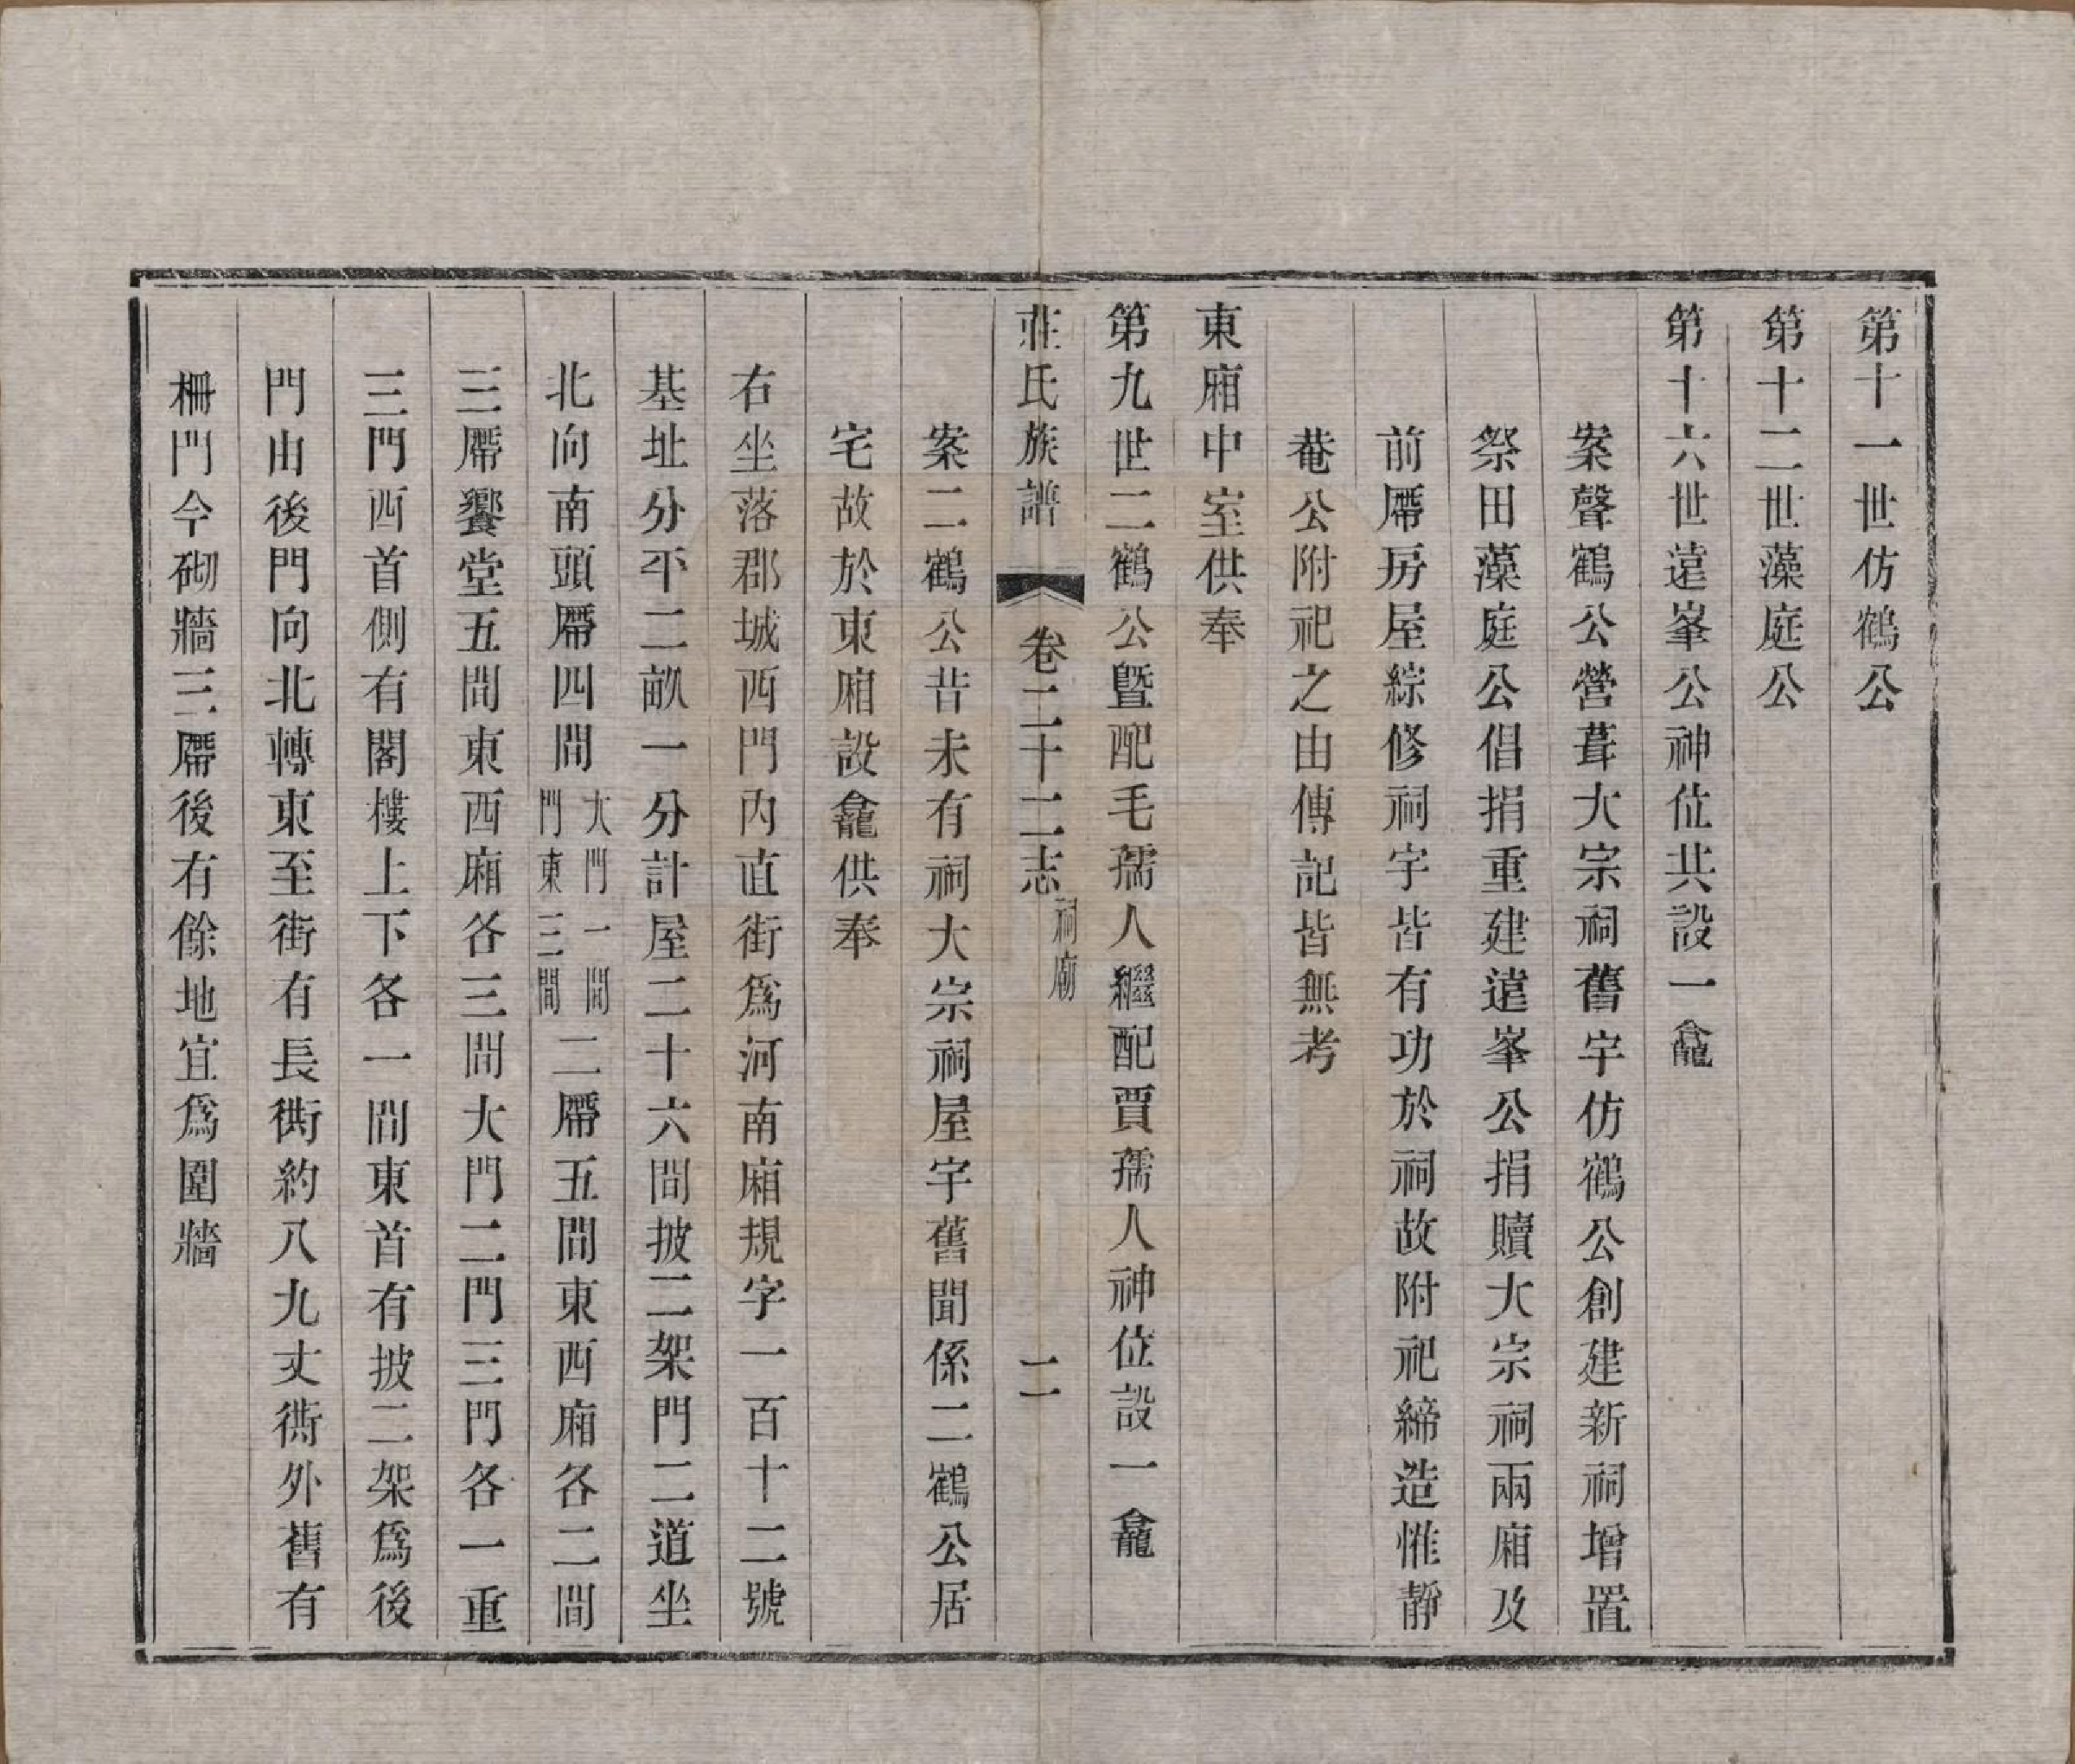 第十一世仿鶴公
第十二世藻庭公
第十六世遠峯公神位共設一龕
案聲鶴公營葺大宗祠舊宇仿鶴公創建新祠增置
祭田藻庭公倡捐重建遠峯公捐贖大宗祠兩廂及
前廗房屋綜修祠宇皆有功於祠故附祀締造惟靜
菴公附祀之由傳記皆無考
東廂中室供奉
第九世二鶴公曁配毛孺人繼配賈孺人神位設一龕
莊氏族譜 卷二十二志 祠廟 二
案二鶴公昔未有祠大宗祠屋宇舊聞係二鶴公居
宅故於東廂設龕供奉
右坐落郡城西門內直街爲河南廂規字一百十二號
基址分平二畝一分計屋二十六間披二架門二道坐
北向南頭廗四間 大門一間門東三間 二廗五間東西廂各二間
三廗饗堂五間東西廂各三間大門二門三門各一重
三門西首側有閣樓上下各一間東首有披二架爲後
門由後門向北轉東至街有長衖約八九丈衖外舊有
柵門今砌牆三廗後有餘地宜爲圍牆